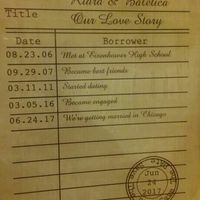 Title
Our Love Story
Date Borrower
08.23.06 Met at Eisenhower High School
09.29.07 Became best friends
03.11.11 Started dating
03.05.16 Became engaged
06.24.17 We're getting married in Chicago
Jun
24
2017